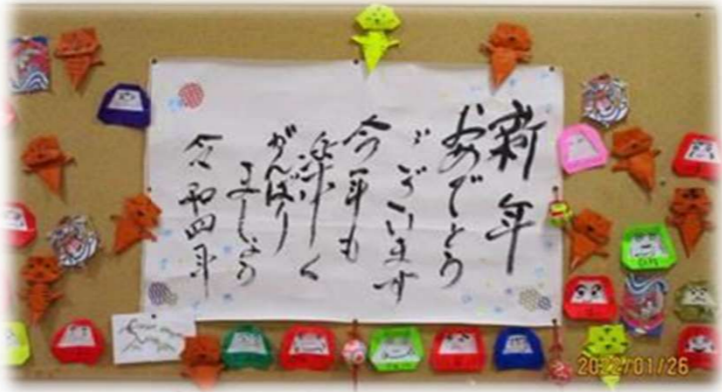 新年
おめでとう
ございます
今年も
楽しく
がんばり
ましょう
令和四年
2022/01/26